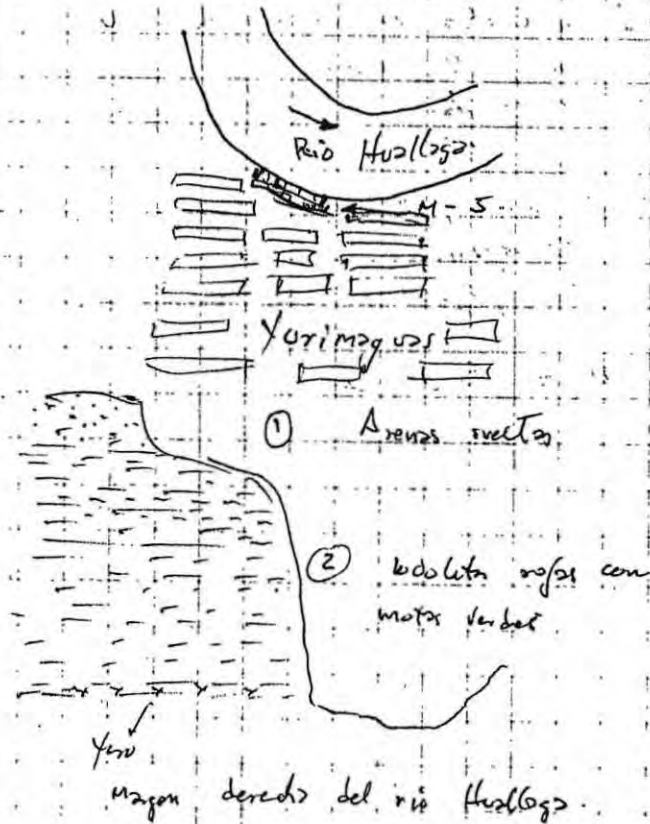 Rio Huallaga
M-5
Yurimaguas
① Arenas sueltas
② lodolitas rojas con
motas verdes
Yeso
Margen derecha del rio Huallaga.